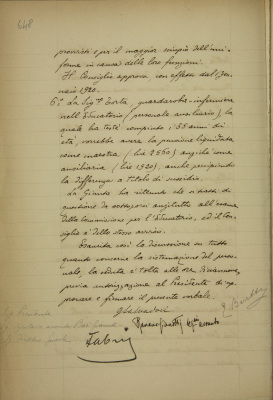 648
provvisti e per il maggior consumo dell'uni-
forme in causa delle loro funzioni.
Il Consiglio approva con effetto dal 1° Gen-
naio 1920.
6° La Sig.ª Torta, guardaroba-infermiera
nell'Educatorio (personale ausiliario), la
quale ha testé compiuto i 55 anni di
età, vorrebbe avere la pensione liquidata
come maestra (lire 2560) anziché come
ausiliaria (lire 1920), anche percependo
la differenza a titolo di sussidio.
La Giunta ha ritenuto che si tratti di
questione da sottoporsi anzitutto all'esame
della Commissione per l'Educatorio, ed il Con-
siglio è dello stesso avviso.
Esaurita così la discussione su tutto
quanto concerne la sistemazione del perso-
nale, la seduta è tolta alle ore
previa autorizzazione al Presidente di ap-
provare e firmare il presente verbale.